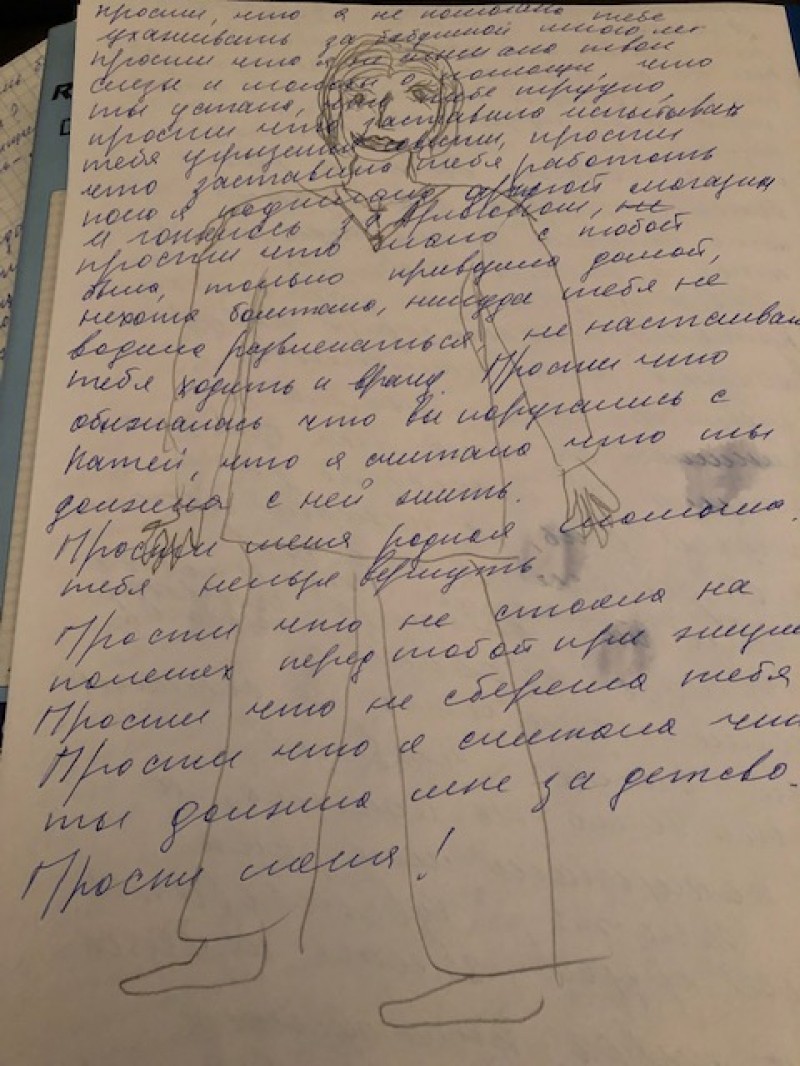 прости, что я не помогала тебе
ухаживать за бабушкой много лет
прости что я не слышала твои
слезы и мольбы о помощи, что
ты устала, что тебе трудно,
прости что заставила испытывать
тебя угрызения совести, прости
что заставила тебя работать
пока я поднимала другой магазин
и гонялась за
прости что мало с тобой
была, только приводила домой,
нехотя болтала, никуда тебя не
водила развлекаться, не настаивала
тебя ходить к врачу. Прости что
обижалась что вы поругались с
Катей, что я считала что ты
должна с ней жить.
Прости меня родная мамочка.
тебя нельзя вернуть
Прости что не стояла на
коленях перед тобой при жизни
Прости что не сберегла тебя
Прости что я считала что
ты должна мне за детсво.
Прости меня!